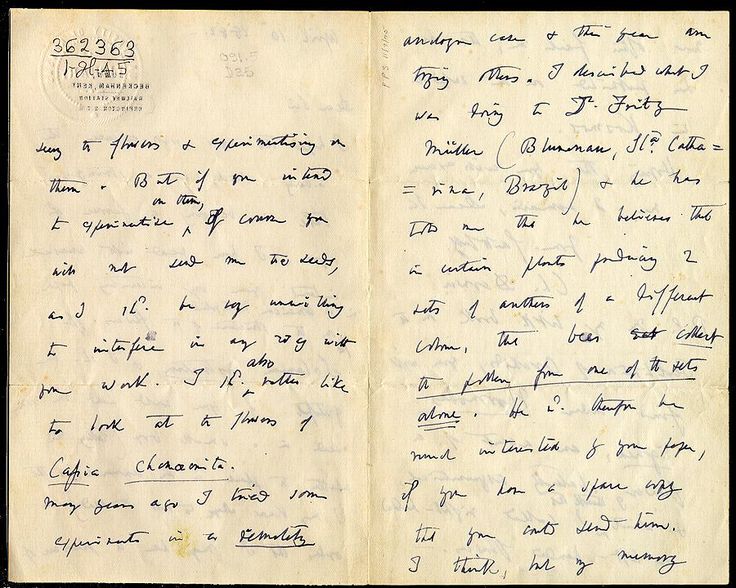 362363
1-2l-45
DOWN,
BECKENHAM, KENT.
RAILWAY STATION
ORPINGTON. S.E.R.
seeing the flowers & experimentising on
them. But if you intend
to experimentise on them, of course you
will not send me the seeds,
as I shd. be very unwilling
to interfere in any way with
your work. I shd. also rather like
to look at the flowers of
Cassia Chamæcrista.
Many years ago I tried some
experiments in a remotely
analogous case & this year am
trying others. I described what I
was doing to Dr. Fritz
Müller (Blumenau, Sta. Catha=
=rina, Brazil) & he has
told me that he believes that
in certain plants producing 2
sets of anthers of a different
colour, the bees collect
the pollen from one of the sets
alone. He wd. therefore be
much interested by your paper,
if you have a spare copy
that you could send him.
I think, but my memory